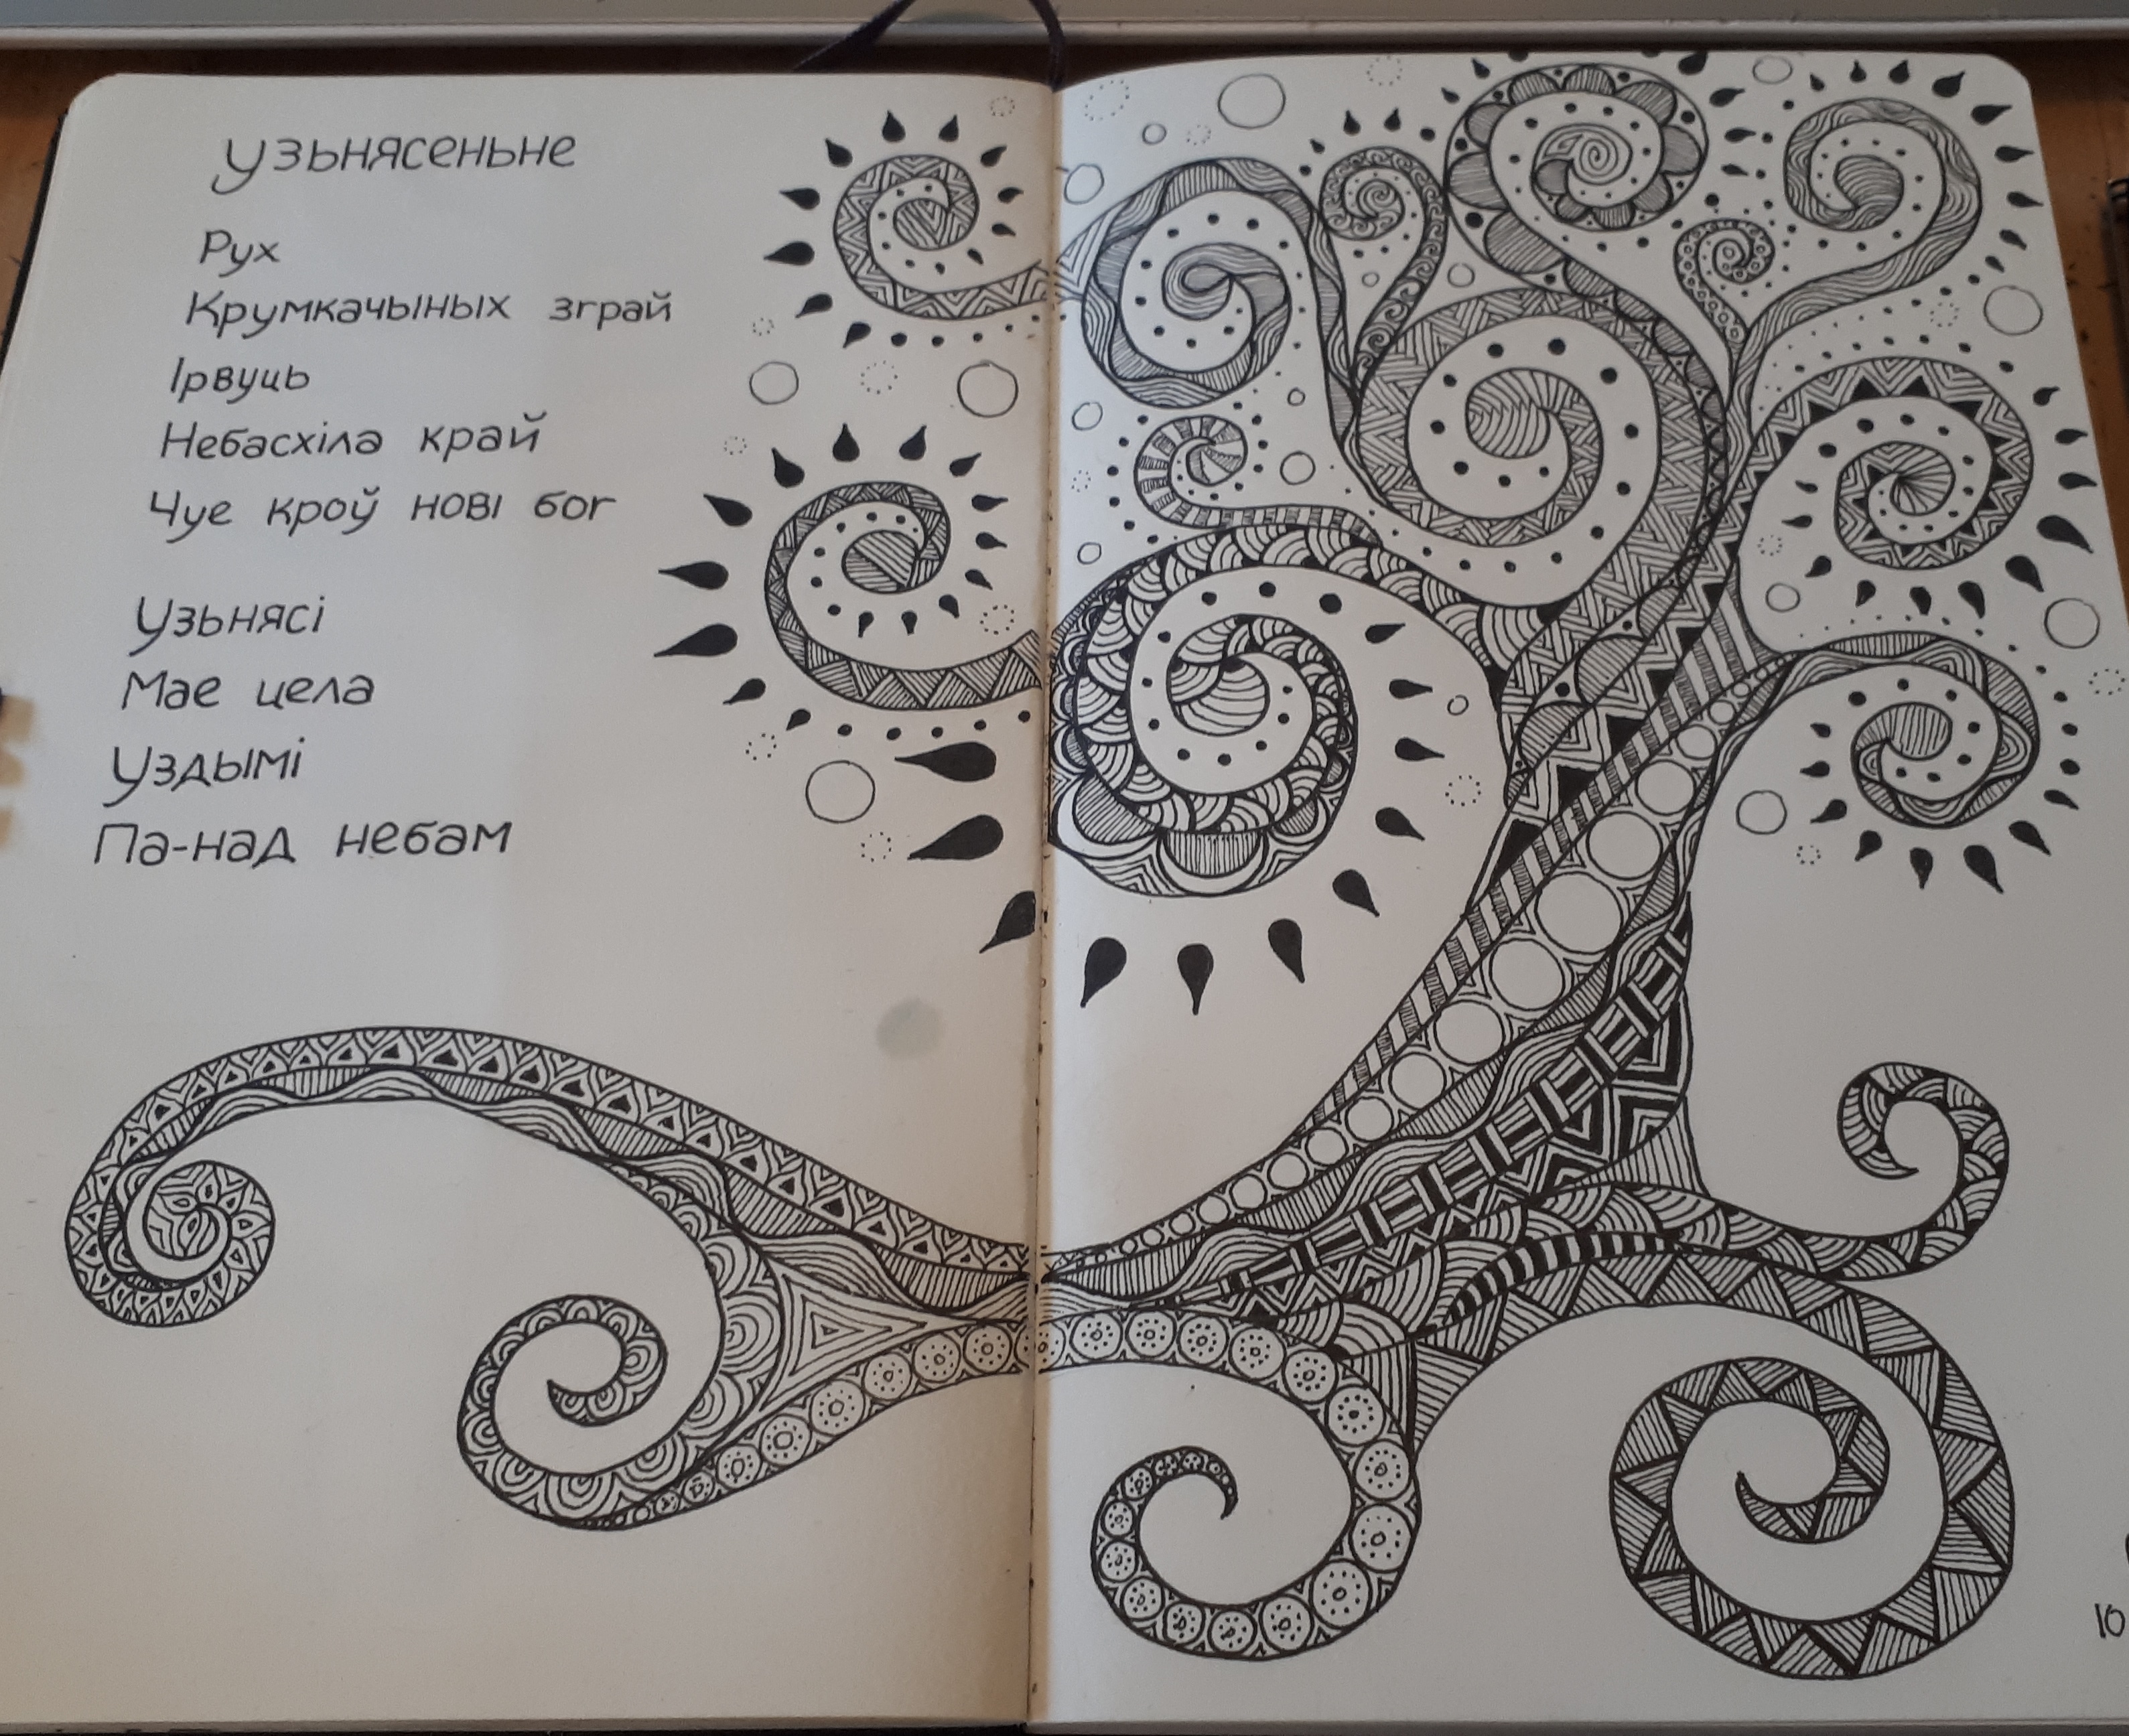 Узьнясеньне
Рух
Крумкачыных зграй
Ірвуць
Небасхіла край
Чуе кроў нові бог
Узьнясі
Мае цела
Уздымі
Па-над небам
10